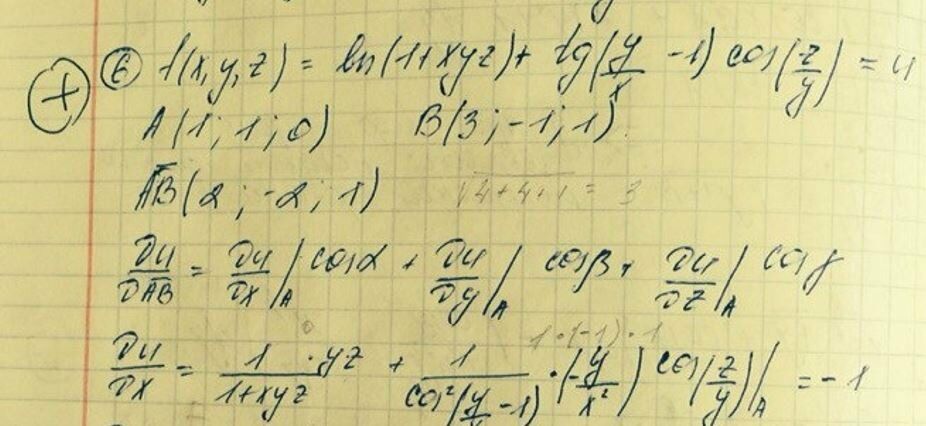 + ⑥ f(x,y,z) = ln(1+xyz) + tg(y/x - 1) cos(z/y) = u
A(1; 1; 0) B(3; -1; 1)
AB(2; -2; 1) √4+4+1 = 3
∂u/∂AB = ∂u/∂x|A cosα + ∂u/∂y|A cosβ + ∂u/∂z|A cosγ
0 1·(-1)·1
∂u/∂x = 1/(1+xyz) · yz + 1/cos²(y/x - 1) · (-y/x²) cos(z/y)|A = -1